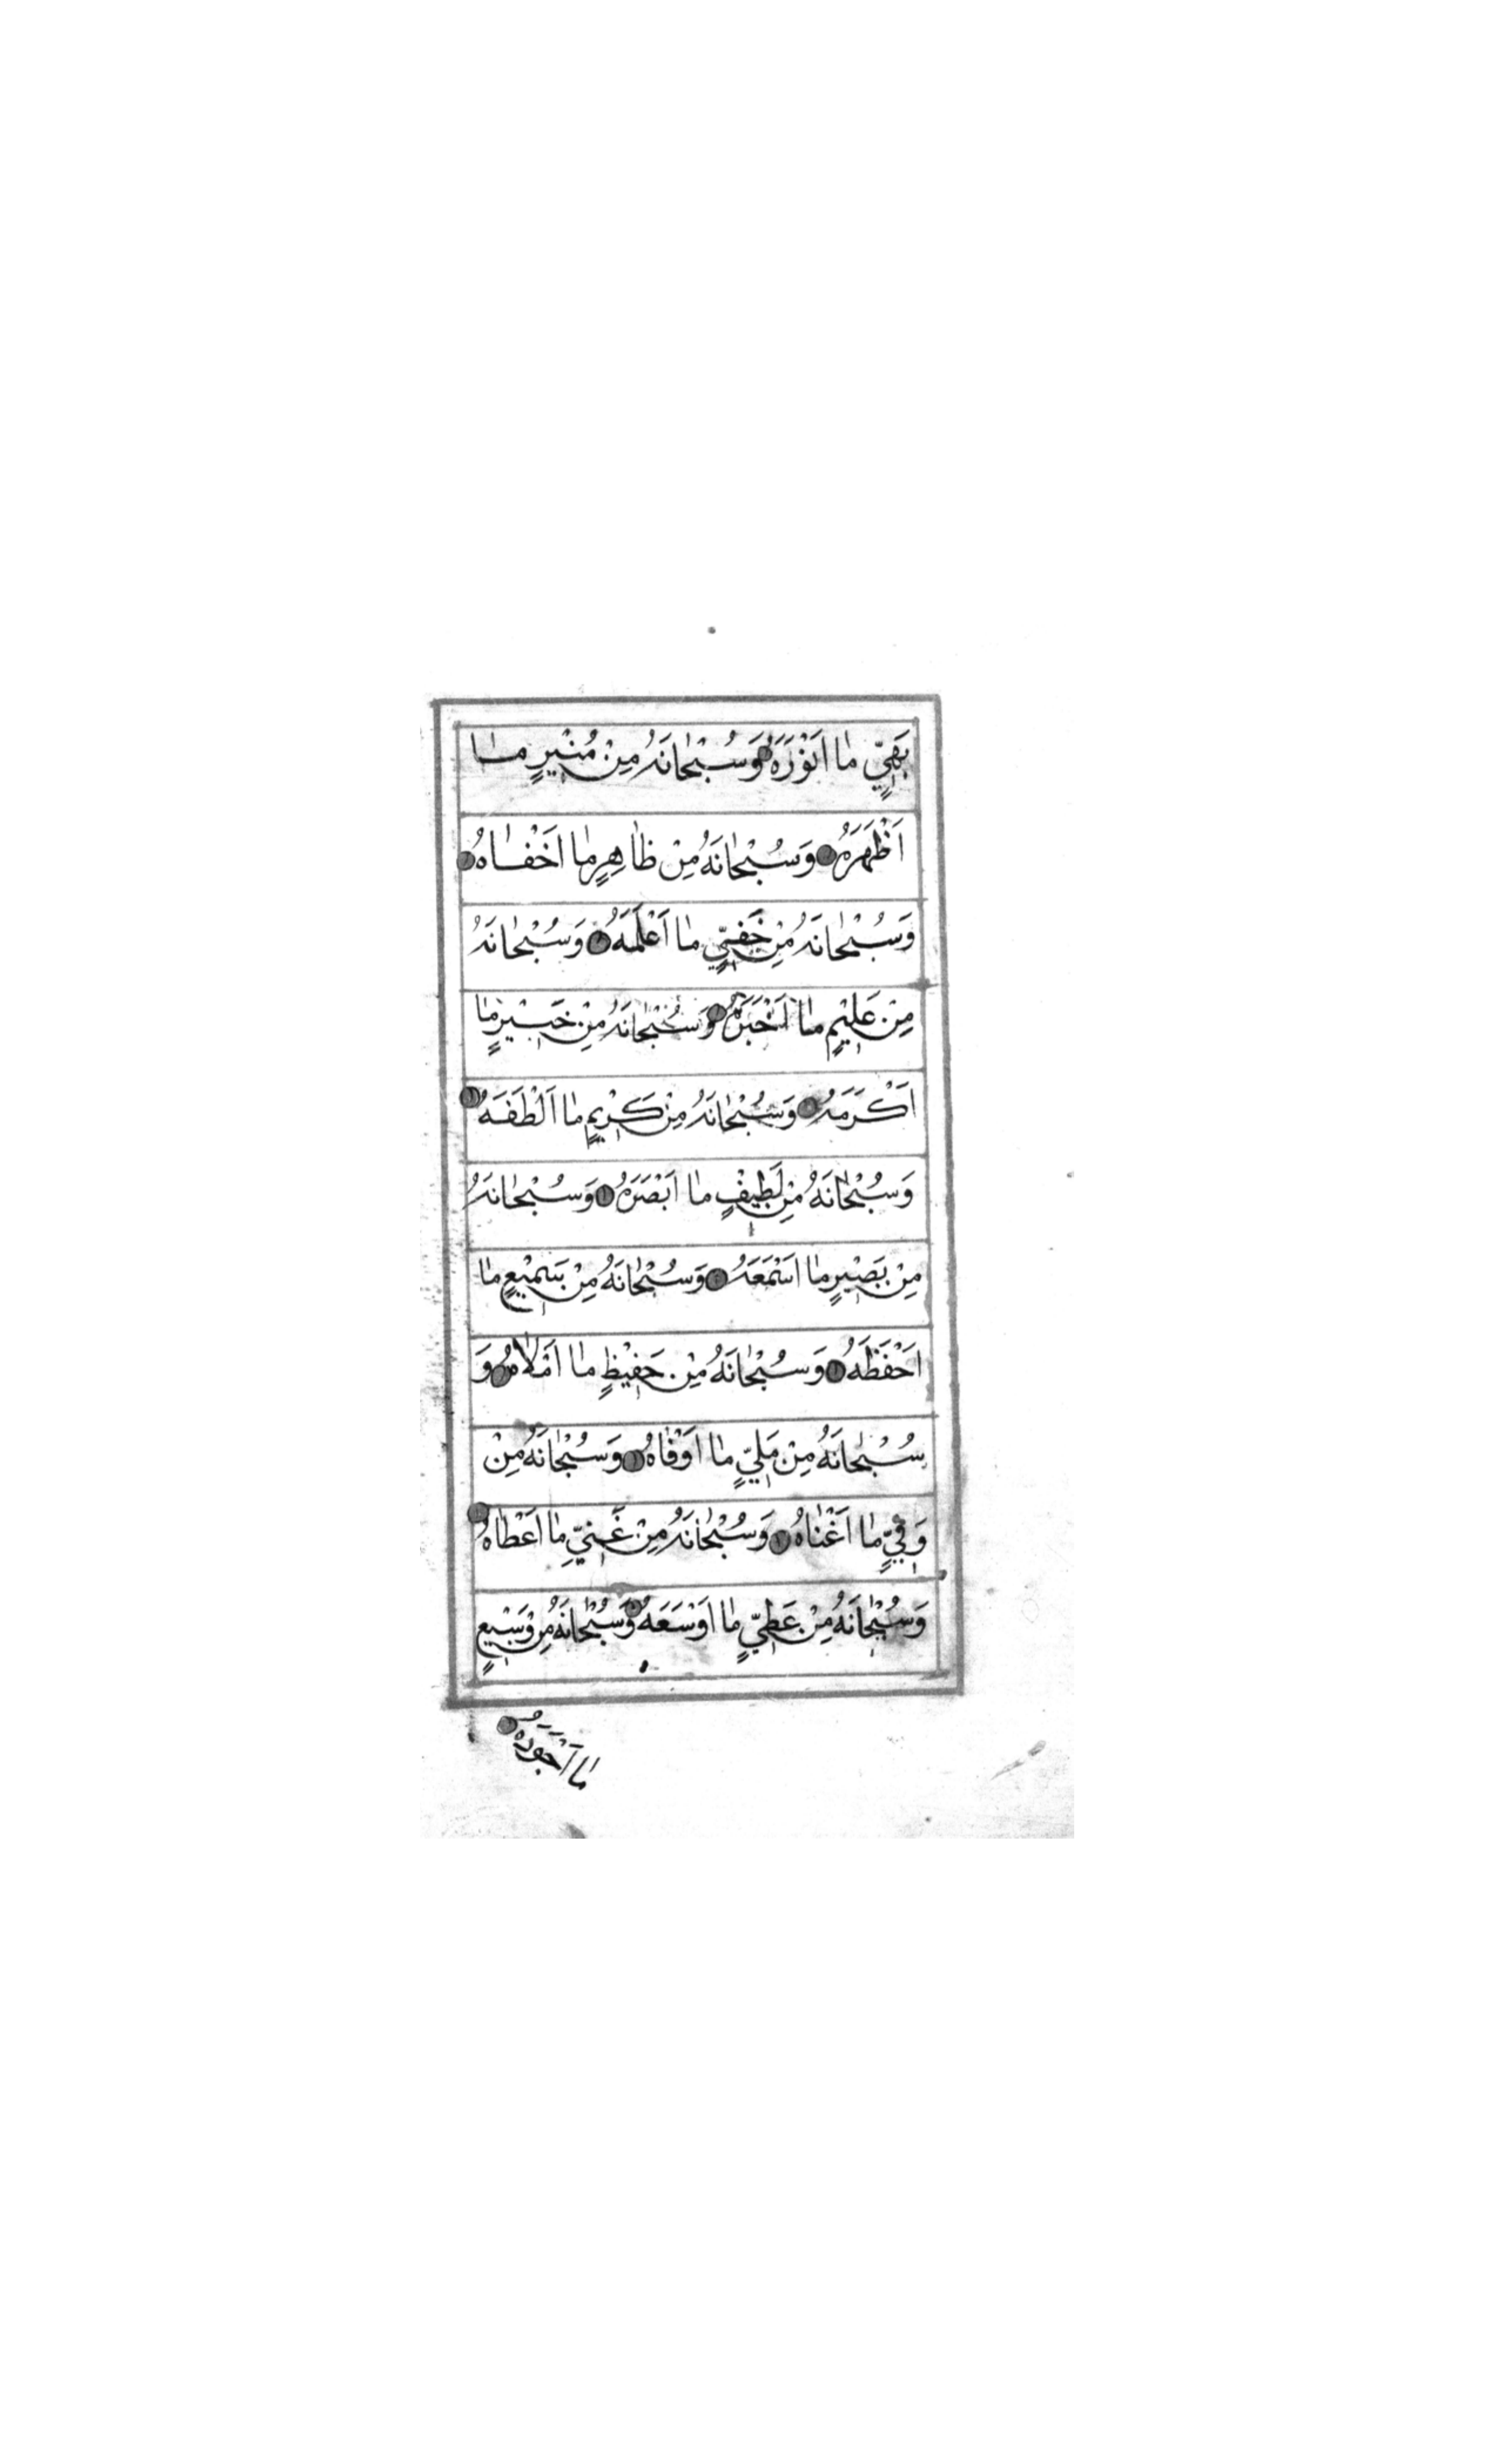 بَهِيٍّ مٰا اَنْوَرَهُ وَسُبْحٰانَهُ مِنْ مُنْيرٍ مٰا
اَظْهَرَهُ وَسُبْحٰانَهُ مِنْ ظٰاهِرٍ مٰا اَخْفٰاهُ
وَسُبْحٰانَهُ مِنْ خَفِيٍّ مٰا اَعْلَمَهُ وَسُبْحٰانَهُ
مِنْ عَلِيْمٍ مٰا اَخْبَرَهُ وَسُبْحٰانَهُ مِنْ خَبِيْرٍ مٰا
اَكْرَمَهُ وَسُبْحٰانَهُ مِنْ كَرِيْمٍ مٰا اَلْطَفَهُ
وَسُبْحٰانَهُ مِنْ لَطِيْفٍ مٰا اَبْصَرَهُ وَسُبْحٰانَهُ
مِنْ بَصِيْرٍ مٰا اَسْمَعَهُ وَسُبْحٰانَهُ مِنْ سَمِيْعٍ مٰا
اَحْفَظَهُ وَسُبْحٰانَهُ مِنْ حَفِيْظٍ مٰا اَمْلاٰهُ وَ
سُبْحٰانَهُ مِنْ مَلِيٍّ مٰا اَوْفٰاهُ وَسُبْحٰانَهُ مِنْ
وَفِيٍّ مٰا اَغْنٰاهُ وَسُبْحٰانَهُ مِنْ غَنِيٍّ مٰا اَعْطٰاهُ
وَسُبْحٰانَهُ مِنْ عَطِيٍّ مٰا اَوْسَعَهُ وَسُبْحٰانَهُ مِنْ وَسِيْعٍ
مٰا اَجْوَدَهُ